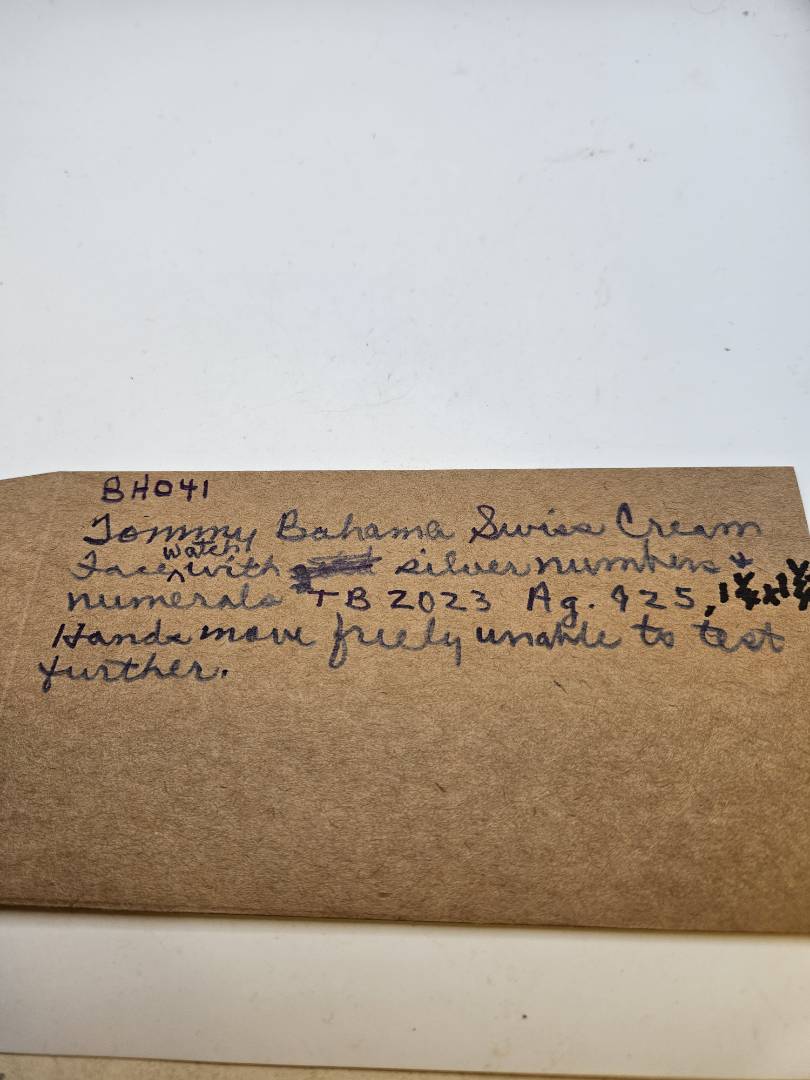 BH041
Tommy Bahama Swiss Cream
Face watch with silver numbers +
numerals TB2023 Ag. 925,
Hands move freely unable to test
further.